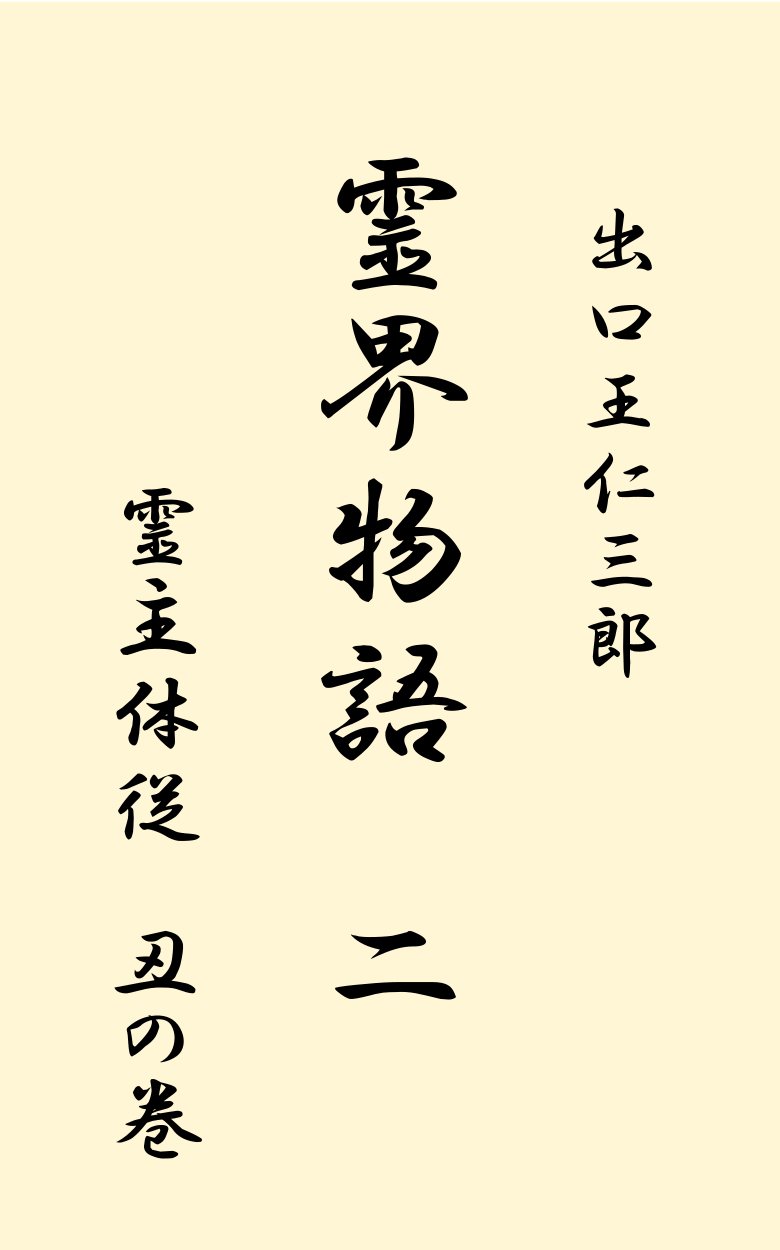 出口王仁三郎
霊界物語　二
霊主体従　丑の巻